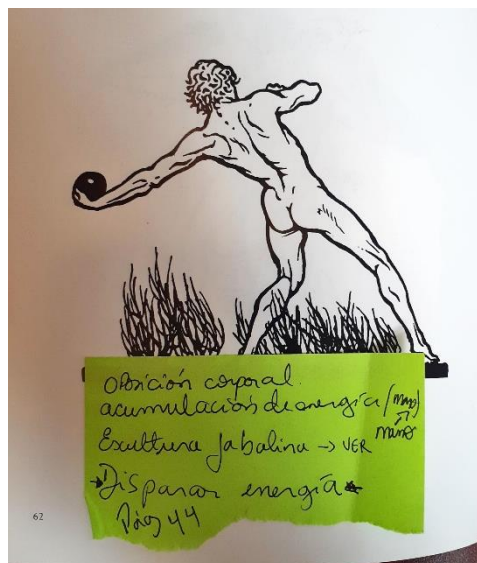 Oposición corporal.
acumulación de energía (mano)
mano
Escultura Jabalina → VER
→ Disparar energía
Pág 44
62